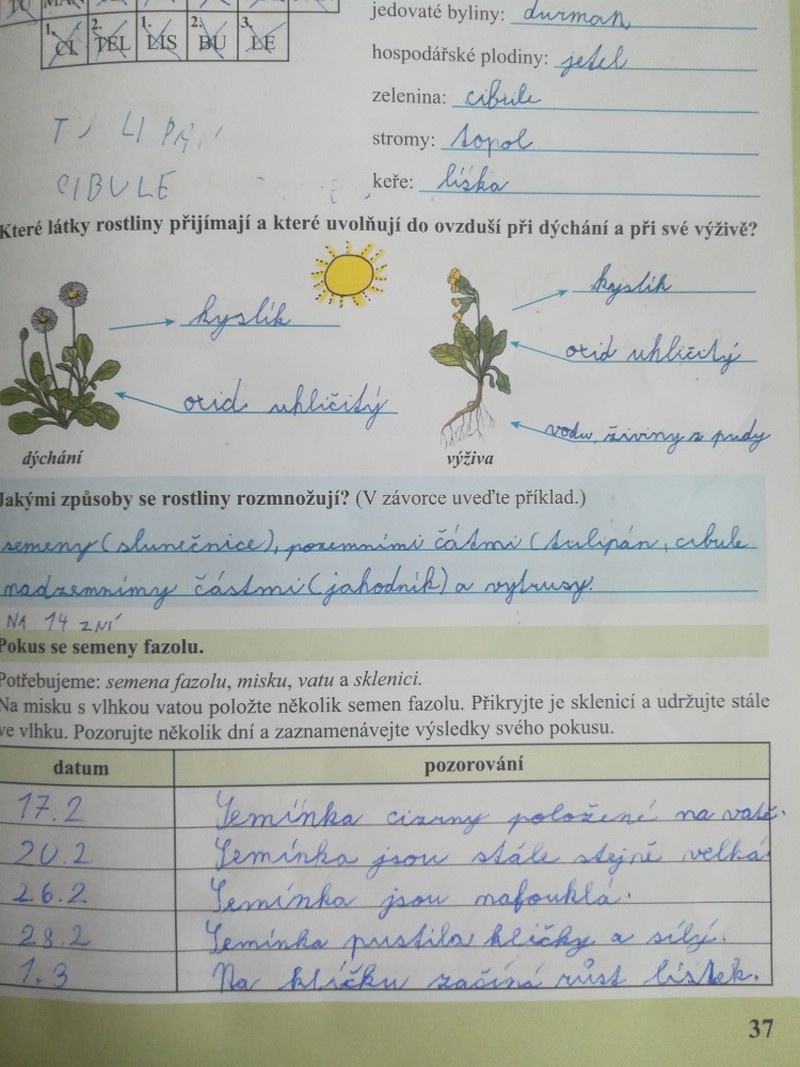 1. CI 2. TEL 1. LIS 2. BU 3. LE
jedovaté byliny: durman
hospodářské plodiny: jetel
zelenina: cibule
stromy: topol
keře: líska
TULIPÁN
CIBULE
Které látky rostliny přijímají a které uvolňují do ovzduší při dýchání a při své výživě?
kyslík
kyslík
oxid uhličitý
oxid uhličitý
vodu, živiny z pudy
dýchání
výživa
Jakými způsoby se rostliny rozmnožují? (V závorce uveďte příklad.)
semeny (slunečnice), pozemními částmi (tulipán, cibule
nadzemnímy částmi (jahodník) a vytrusy.
NA 14 ZNÍ
Pokus se semeny fazolu.
Potřebujeme: semena fazolu, misku, vatu a sklenici.
Na misku s vlhkou vatou položte několik semen fazolu. Přikryjte je sklenicí a udržujte stále
ve vlhku. Pozorujte několik dní a zaznamenávejte výsledky svého pokusu.
datum pozorování
17.2 Semínka cizrny položené na vatě.
20.2 Semínka jsou stále stejně velká.
26.2. Semínka jsou nafouklá.
28.2 Semínka pustila klíčky a sílý.
1.3 Na klíčku začíná růst lístek.
37